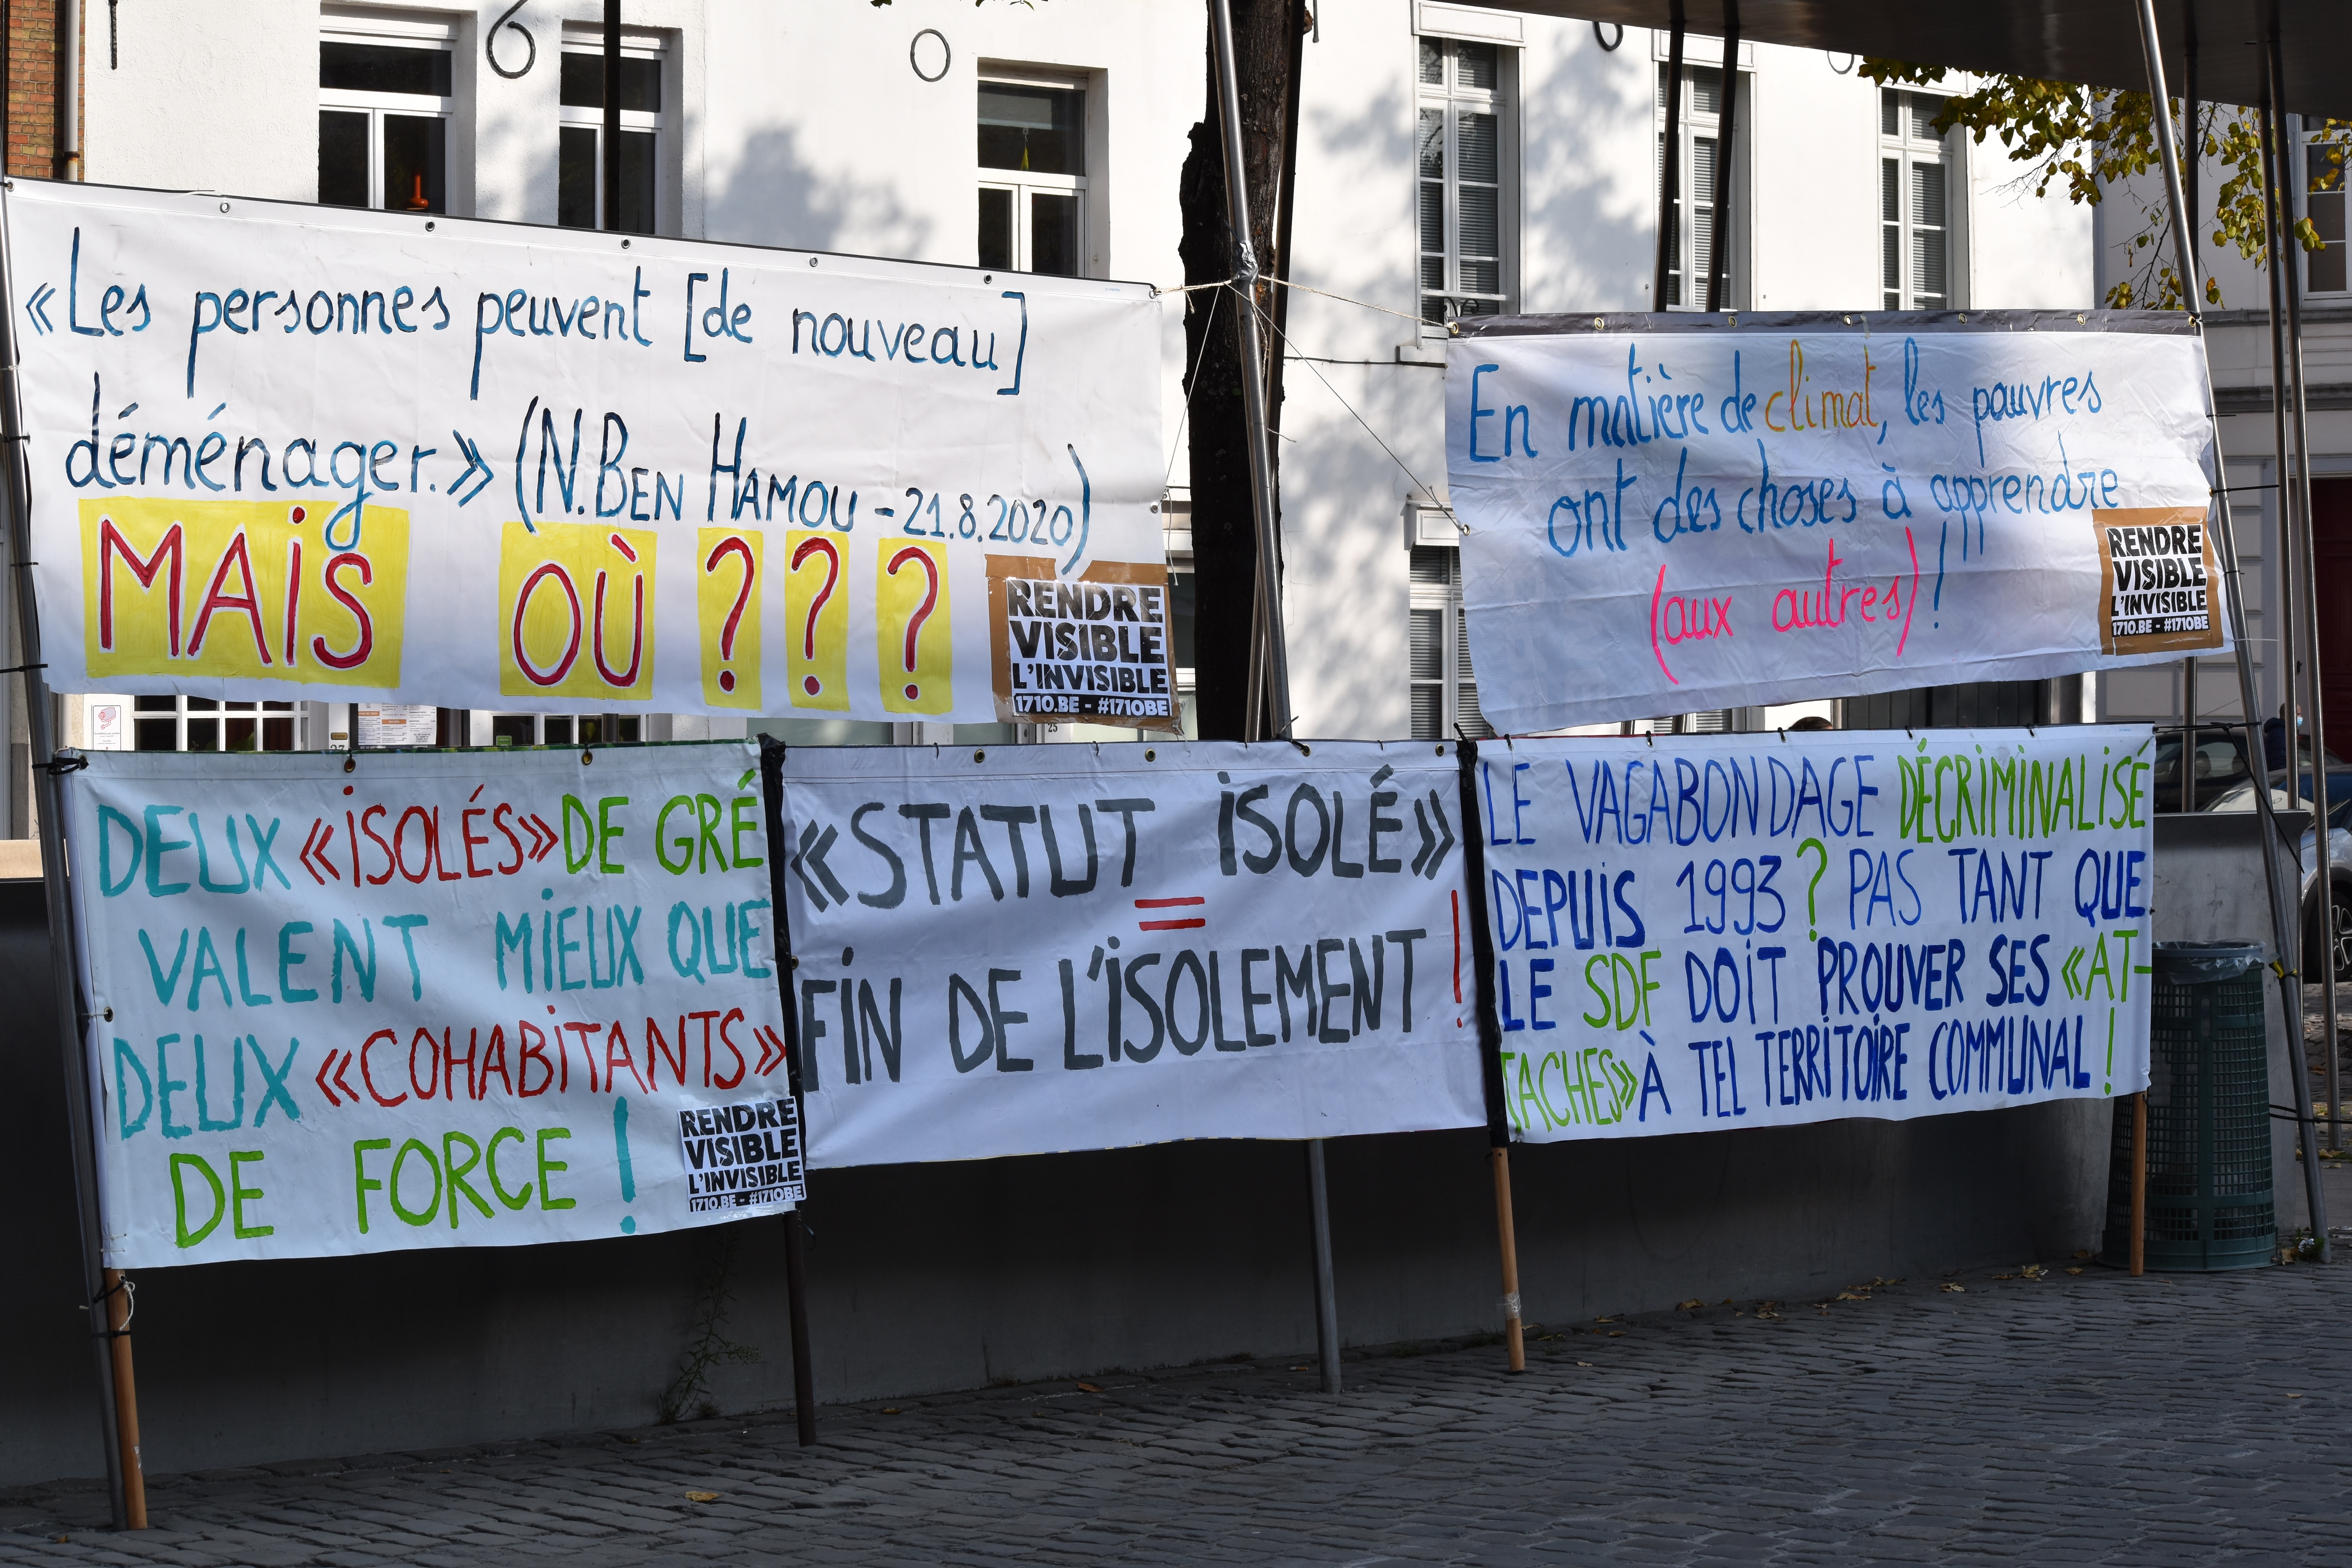 «Les personnes peuvent [de nouveau]
déménager.» (N. BEN HAMOU - 21.8.2020)
MAiS OÙ ? ? ?
RENDRE
VISIBLE
L'INVISIBLE
1710.BE - #1710BE
En matière de climat, les pauvres
ont des choses à apprendre
(aux autres) !
RENDRE
VISIBLE
L'INVISIBLE
1710.BE - #1710BE
DEUX «iSOLÉS» DE GRÉ
VALENT MiEUX QUE
DEUX «COHABiTANTS»
DE FORCE !
RENDRE
VISIBLE
L'INVISIBLE
1710.BE - #1710BE
«STATUT iSOLÉ»
=
FiN DE L'iSOLEMENT !
LE VAGABONDAGE DÉCRiMiNALiSÉ
DEPUiS 1993 ? PAS TANT QUE
LE SDF DOiT PROUVER SES «AT-
TACHES» À TEL TERRiTOiRE COMMUNAL !